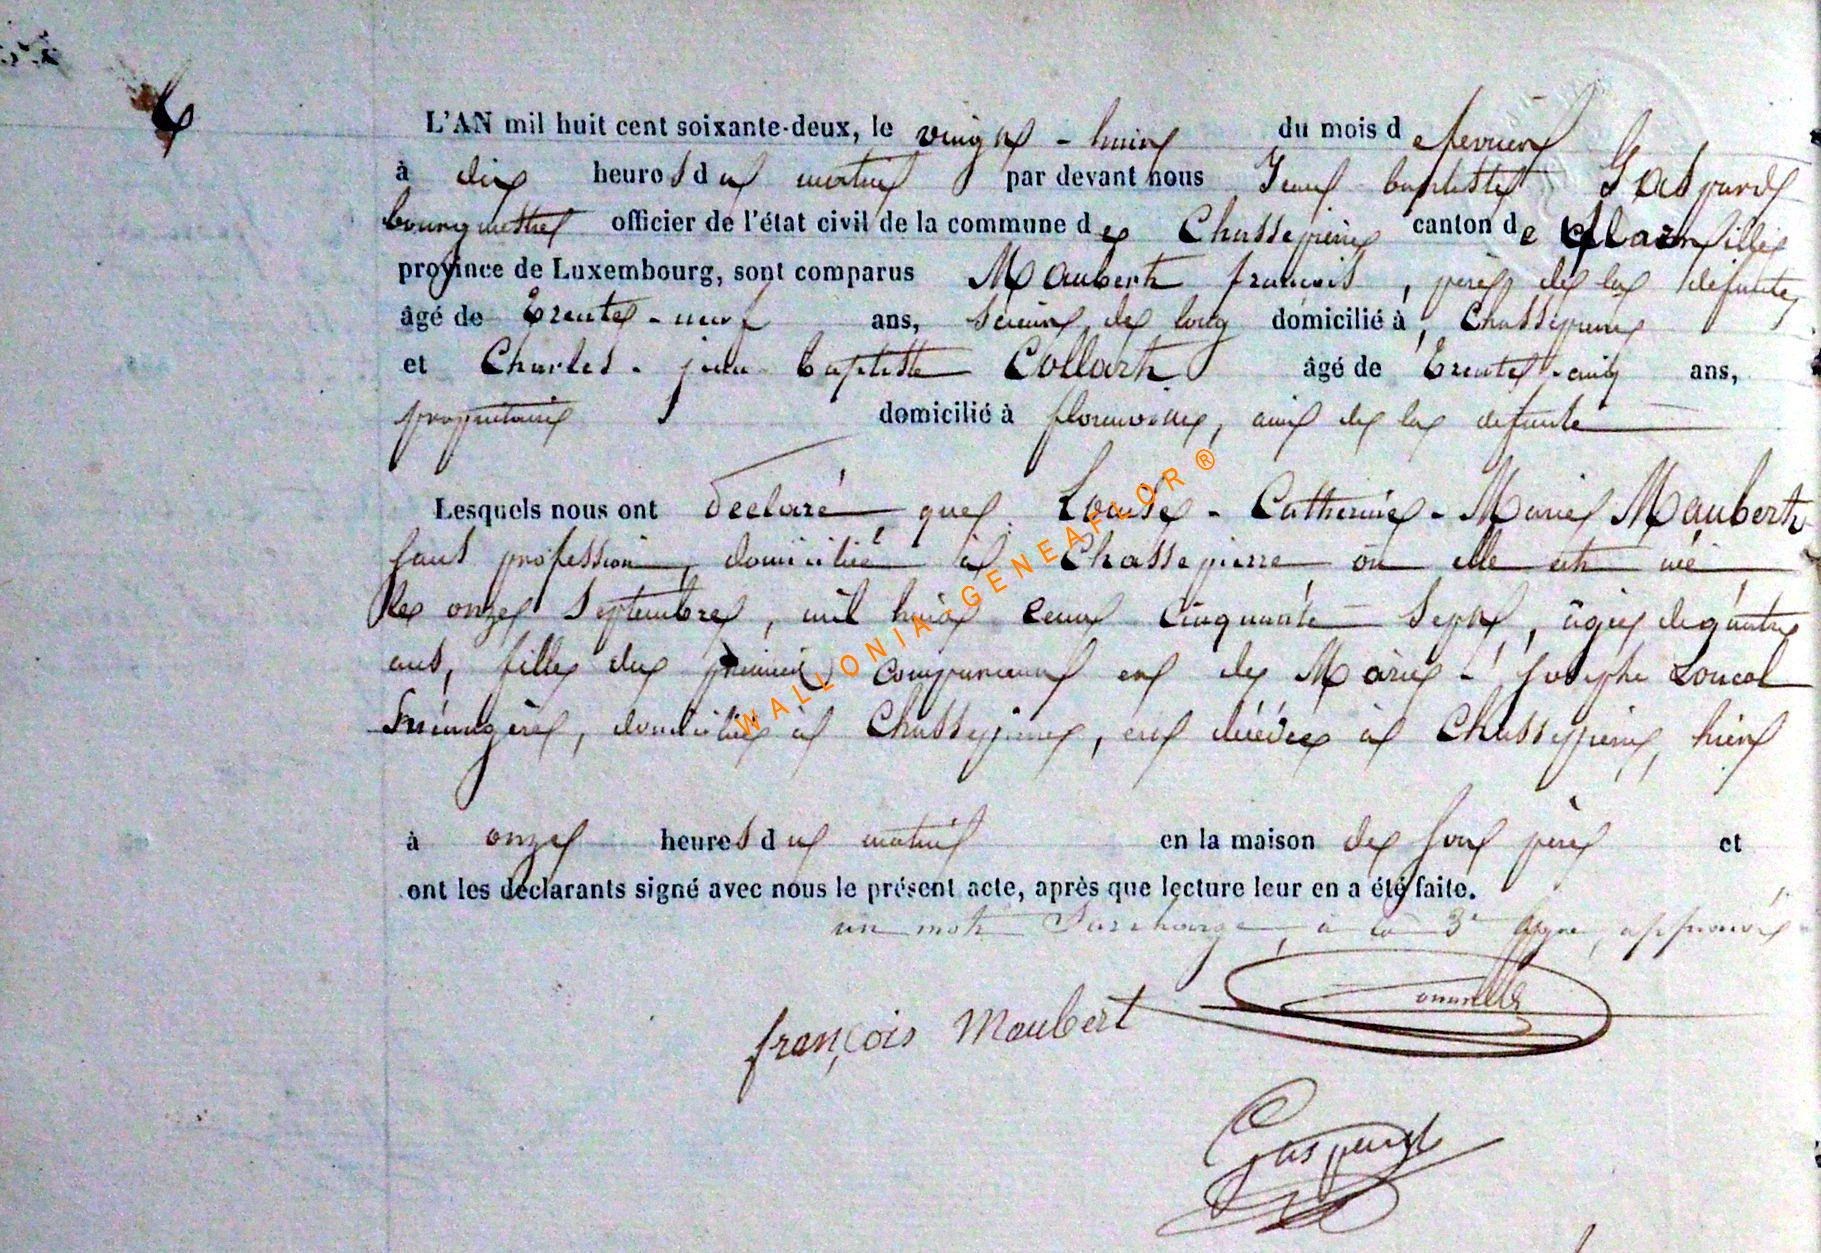 6
L'AN mil huit cent soixante-deux, le vingt-huit du mois de fevrier
à dix heures du matin par devant nous Jean baptiste Gaspard
bourgmestre officier de l'état civil de la commune de Chassepierre canton de florenville
province de Luxembourg, sont comparus Maubert françois, père de la défunte,
âgé de trente-neuf ans, scieur de long domicilié à Chassepierre
et Charles-jean baptiste Collart âgé de trente-cinq ans,
propriétaire domicilié à florenville, ami de la défunte
Lesquels nous ont déclaré que Louise-Catherine-Marie Maubert
sans profession, domiciliée à Chassepierre où elle est née
le onze Septembre, mil huit cent cinquante-Sept, âgée de quatre
ans, fille du premier comparant et de Marie-Josephe
ménagère, domiciliée à Chassepierre, est décédée à Chassepierre, hier
à onze heures du matin en la maison de son père et
ont les déclarants signé avec nous le présent acte, après que lecture leur en a été faite.
un mot Surchargé, à la 3e ligne, approuvé
françois Maubert
Gaspard
WALLONIA-GENEAFLOR ®